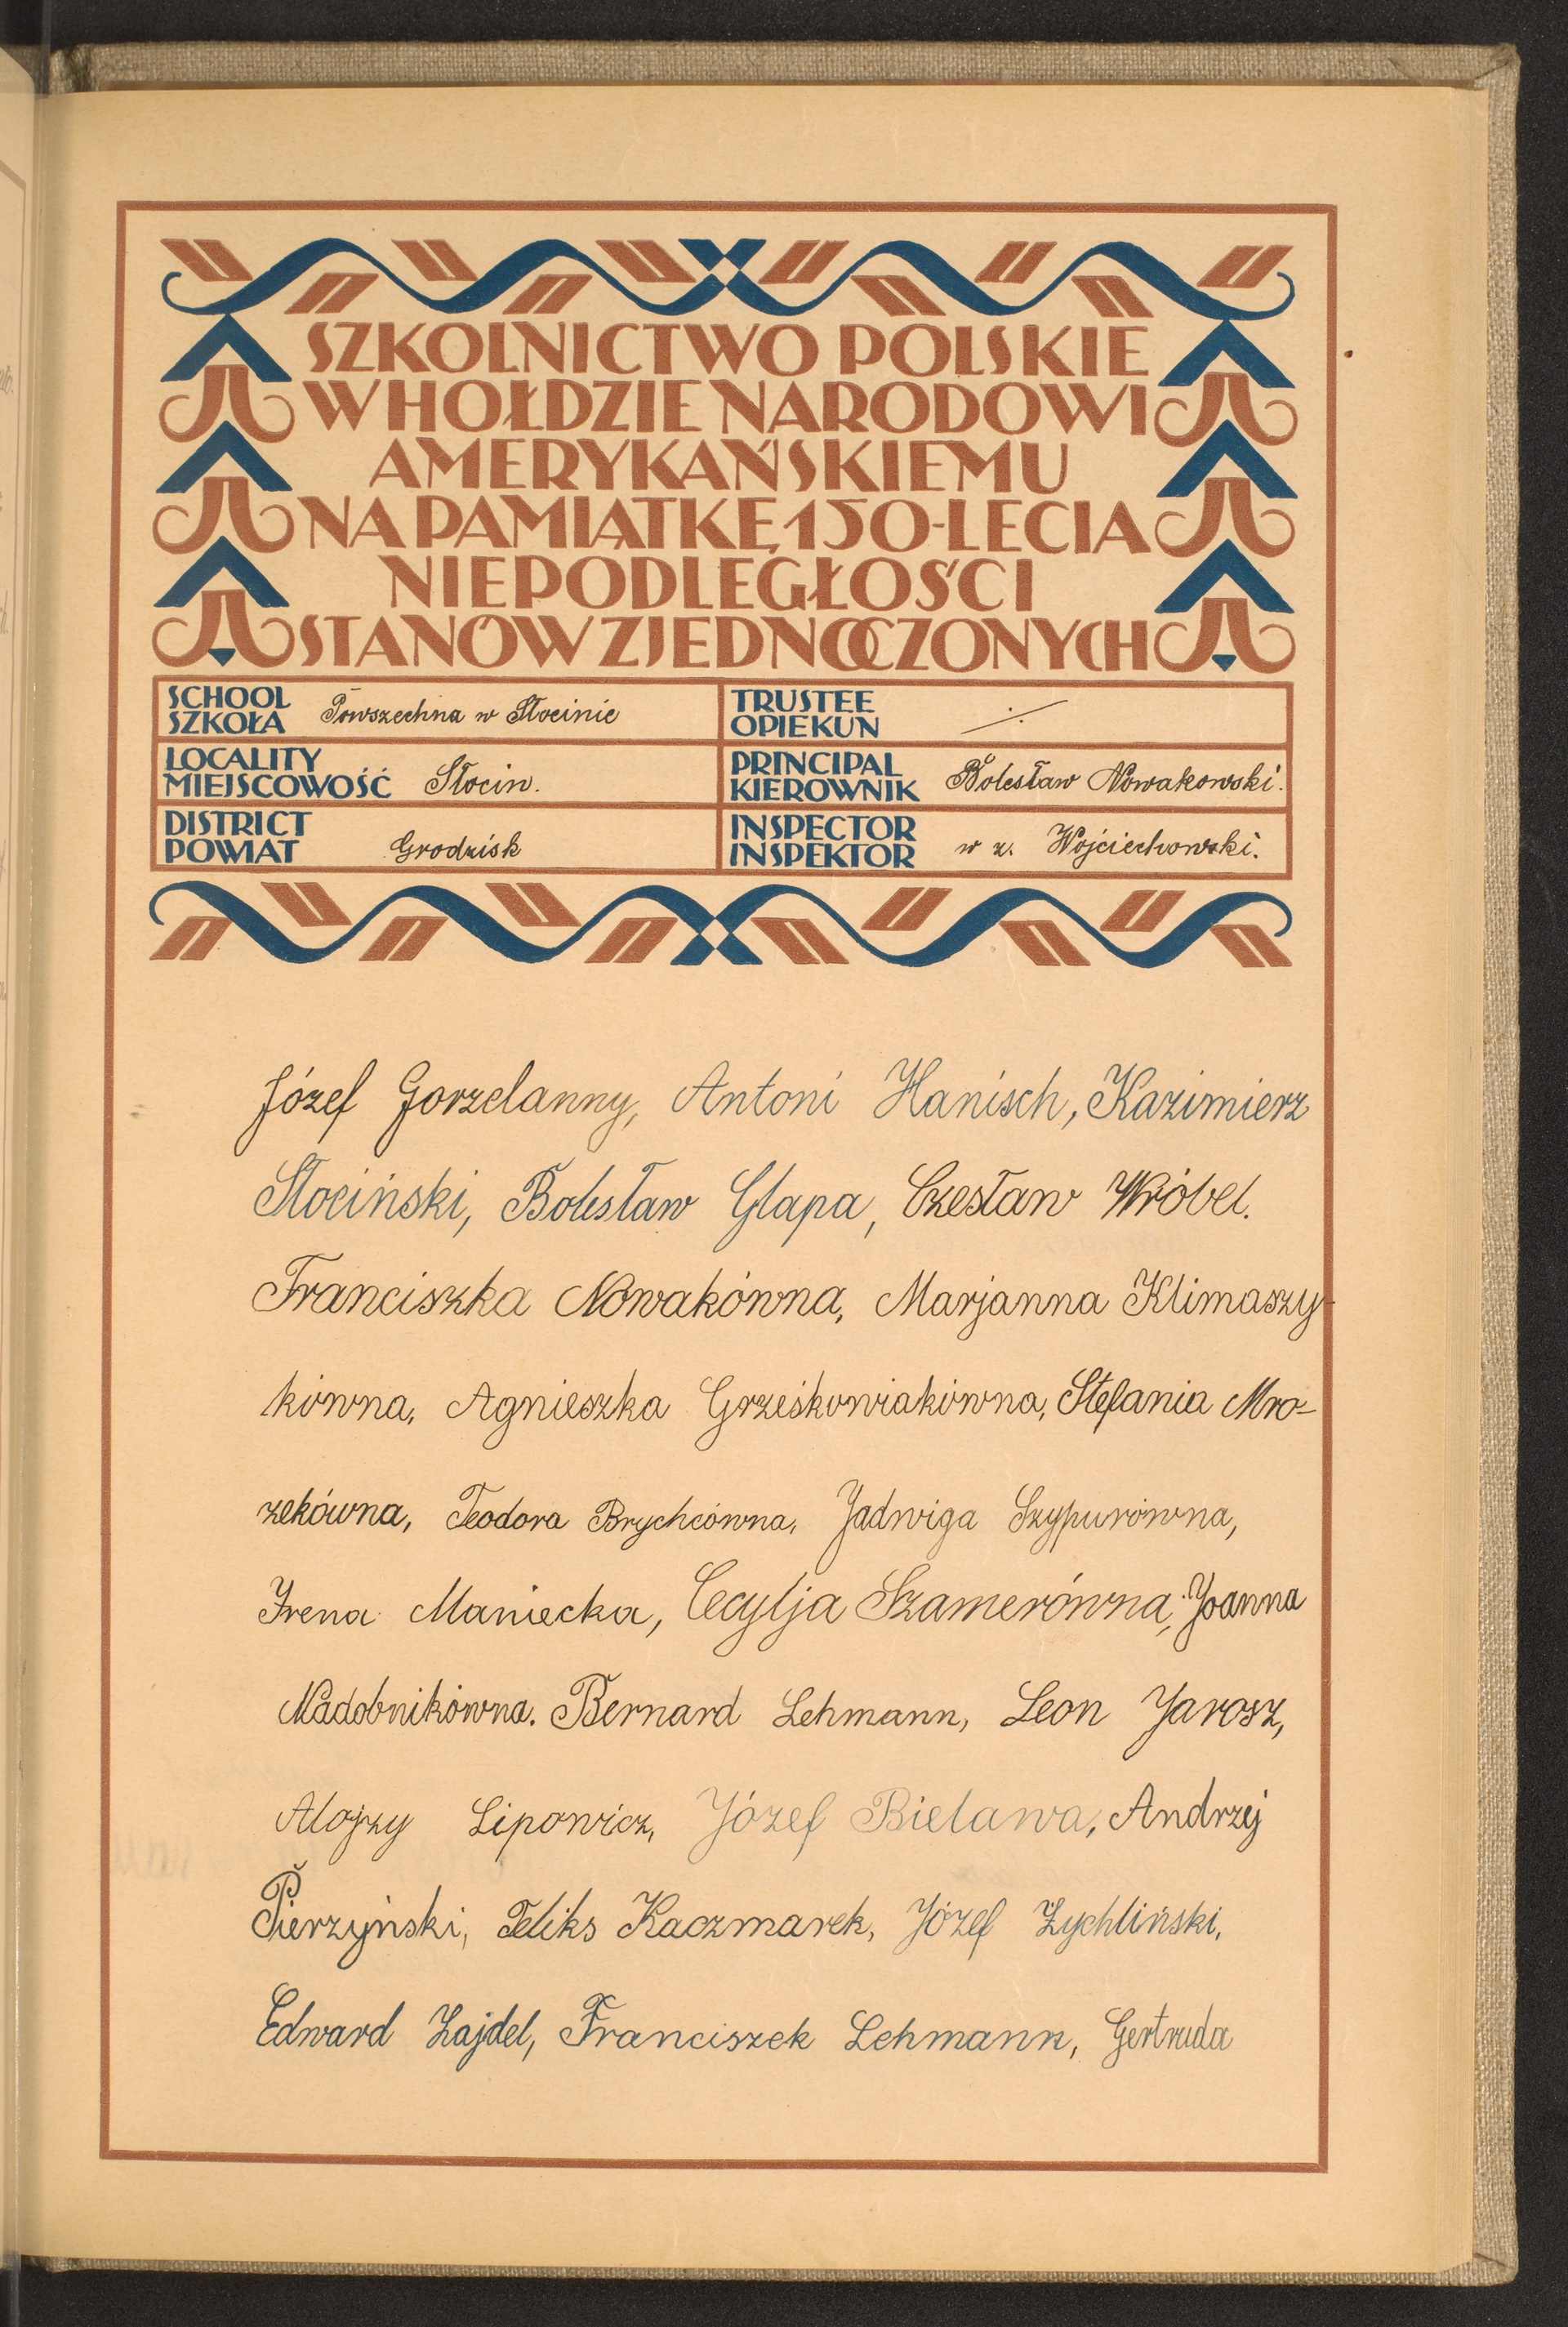 SZKOLNICTWO POLSKIE
W HOŁDZIE NARODOWI
AMERYKAŃSKIEMU
NA PAMIĄTKĘ 150-LECIA
NIEPODLEGŁOŚCI
STANÓW ZJEDNOCZONYCH
SCHOOL
SZKOŁA Powszechna w Słocinie
TRUSTEE
OPIEKUN ·/·
LOCALITY
MIEJSCOWOŚĆ Słocin.
PRINCIPAL
KIEROWNIK Bolesław Nowakowski.
DISTRICT
POWIAT Grodzisk
INSPECTOR
INSPEKTOR w z. Wojciechowski.
Józef Gorzelanny, Antoni Hanisch, Kazimierz
Słociński, Bolesław Glapa, Czesław Wróbel.
Franciszka Nowakówna, Marjanna Klimaszy-
kówna, Agnieszka Grześkowiakówna, Stefania Mro-
zekówna, Teodora Brychcówna, Jadwiga Szypurówna,
Irena Maniecka, Cecylja Szamerówna, Joanna
Nadobnikówna. Bernard Lehmann, Leon Jarosz,
Alojzy Lipowicz, Józef Bielawa, Andrzej
Pierzyński, Feliks Kaczmarek, Józef Żychliński,
Edward Zajdel, Franciszek Lehmann, Gertruda